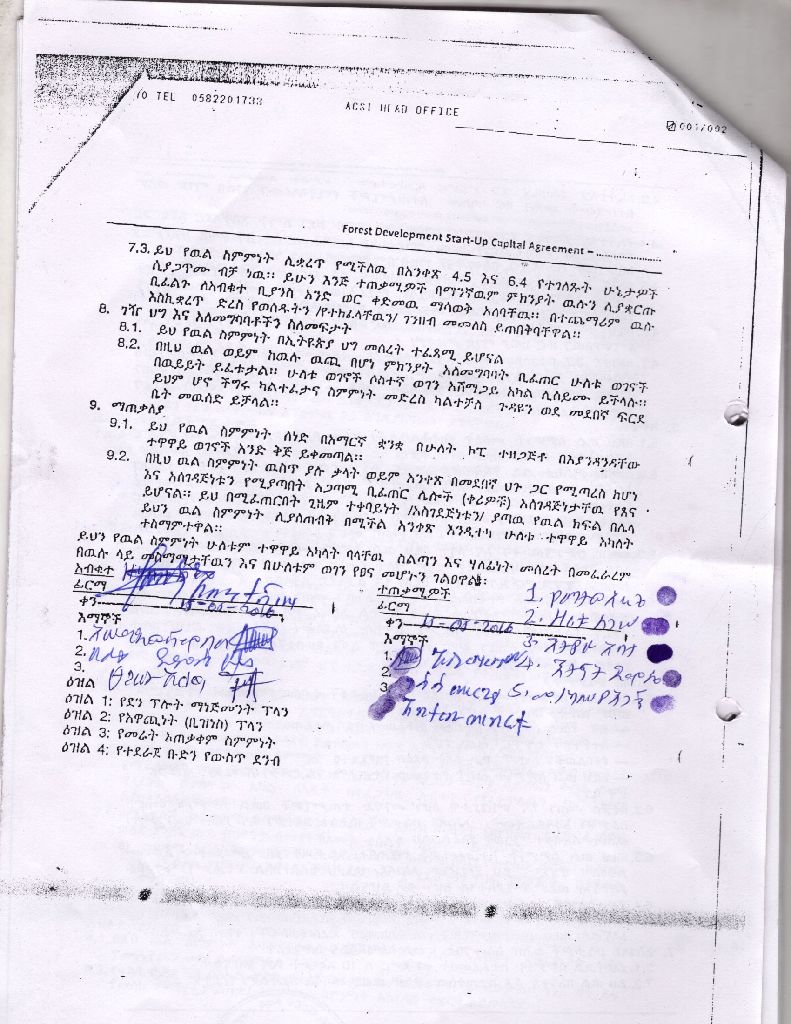 TO TEL 0582201733 ACSI HEAD OFFICE 001/002
Forest Development Start-Up Capital Agreement –
7.3. ይህ የዉል ስምምነት ሊቋረጥ የሚችለዉ በአንቀጽ 4.5 እና 6.4 የተገለጹት ሁኔታዎች
ሲያጋጥሙ ብቻ ነዉ። ይሁን እንጅ ተጠቃሚዎች በማንኛዉም ምክንያት ዉሉን ሊያቋርጡ
ቢፈልጉ ለአብቁተ ቢያንስ አንድ ወር ቀድመዉ ማሳወቅ አለባቸዉ። በተጨማሪም ዉሉ
እስኪቋረጥ ድረስ የወሰዱትን /የተከፈላቸዉን/ ገንዘብ መመለስ ይጠበቅባቸዋል።
8. ገዥ ህግ እና አለመግባባቶችን ስለመፍታት
8.1. ይህ የዉል ስምምነት በኢትዮጵያ ህግ መሰረት ተፈጻሚ ይሆናል
8.2. በዚህ ዉል ወይም ከዉሉ ዉጪ በሆነ ምክንያት አለመግባባት ቢፈጠር ሁለቱ ወገኖች
በዉይይት ይፈቱታል። ሁለቱ ወገኖች ሶስተኛ ወገን አሸማጋይ አካል ሊሰይሙ ይችላሉ።
ይህም ሆኖ ችግሩ ካልተፈታና ስምምነት መድረስ ካልተቻለ ጉዳዩን ወደ መደበኛ ፍርድ
ቤት መዉሰድ ይቻላል።
9. ማጠቃለያ
9.1. ይህ የዉል ስምምነት ሰነድ በአማርኛ ቋንቋ በሁለት ኮፒ ተዘጋጅቶ በእያንዳንዳቸው
ተዋዋይ ወገኖች አንድ ቅጅ ይቀመጣል።
9.2. በዚህ ዉል ስምምነት ዉስጥ ያሉ ቃላት ወይም አንቀጽ በመደበኛ ህጉ ጋር የሚጣረስ ከሆነ
እና አስገዳጅነቱን የሚያጣበት አጋጣሚ ቢፈጠር ሌሎች (ቀሪዎቹ) አስገዳጅነታቸዉ የጸና
ይሆናል። ይህ በሚፈጠርበት ጊዜም ተቀባይነት /አስገዳጅነቱን/ ያጣዉ የዉል ክፍል በሌላ
ይህን ዉል ስምምነት ሊያስጠብቅ በሚችል አንቀጽ እንዲተካ ሁለቱ ተዋዋይ አካላት
ተስማምተዋል።
ይህን የዉል ስምምነት ሁለቱም ተዋዋይ አካላት ባላቸዉ ስልጣን እና ሃላፊነት መሰረት በመፈራረም
በዉሉ ላይ መስማማታቸዉን እና በሁለቱም ወገን የፀና መሆኑን ገልፀዋል።
አብቁተ ተጠቃሚዎች
ፊርማ ፊርማ
ቀን 15-05-2016 ቀን 15-05-2016
እማኞች እማኞች
1. 1.
2. 2.
3. 3
ዕዝል
ዕዝል 1: የደን ፕሎት ማነጅመንት ፕላን
ዕዝል 2: የአዋጪነት (ቢዝነስ) ፕላን
ዕዝል 3: የመሬት አጠቃቀም ስምምነት
ዕዝል 4: የተደራጀ ቡድን የውስጥ ደንብ